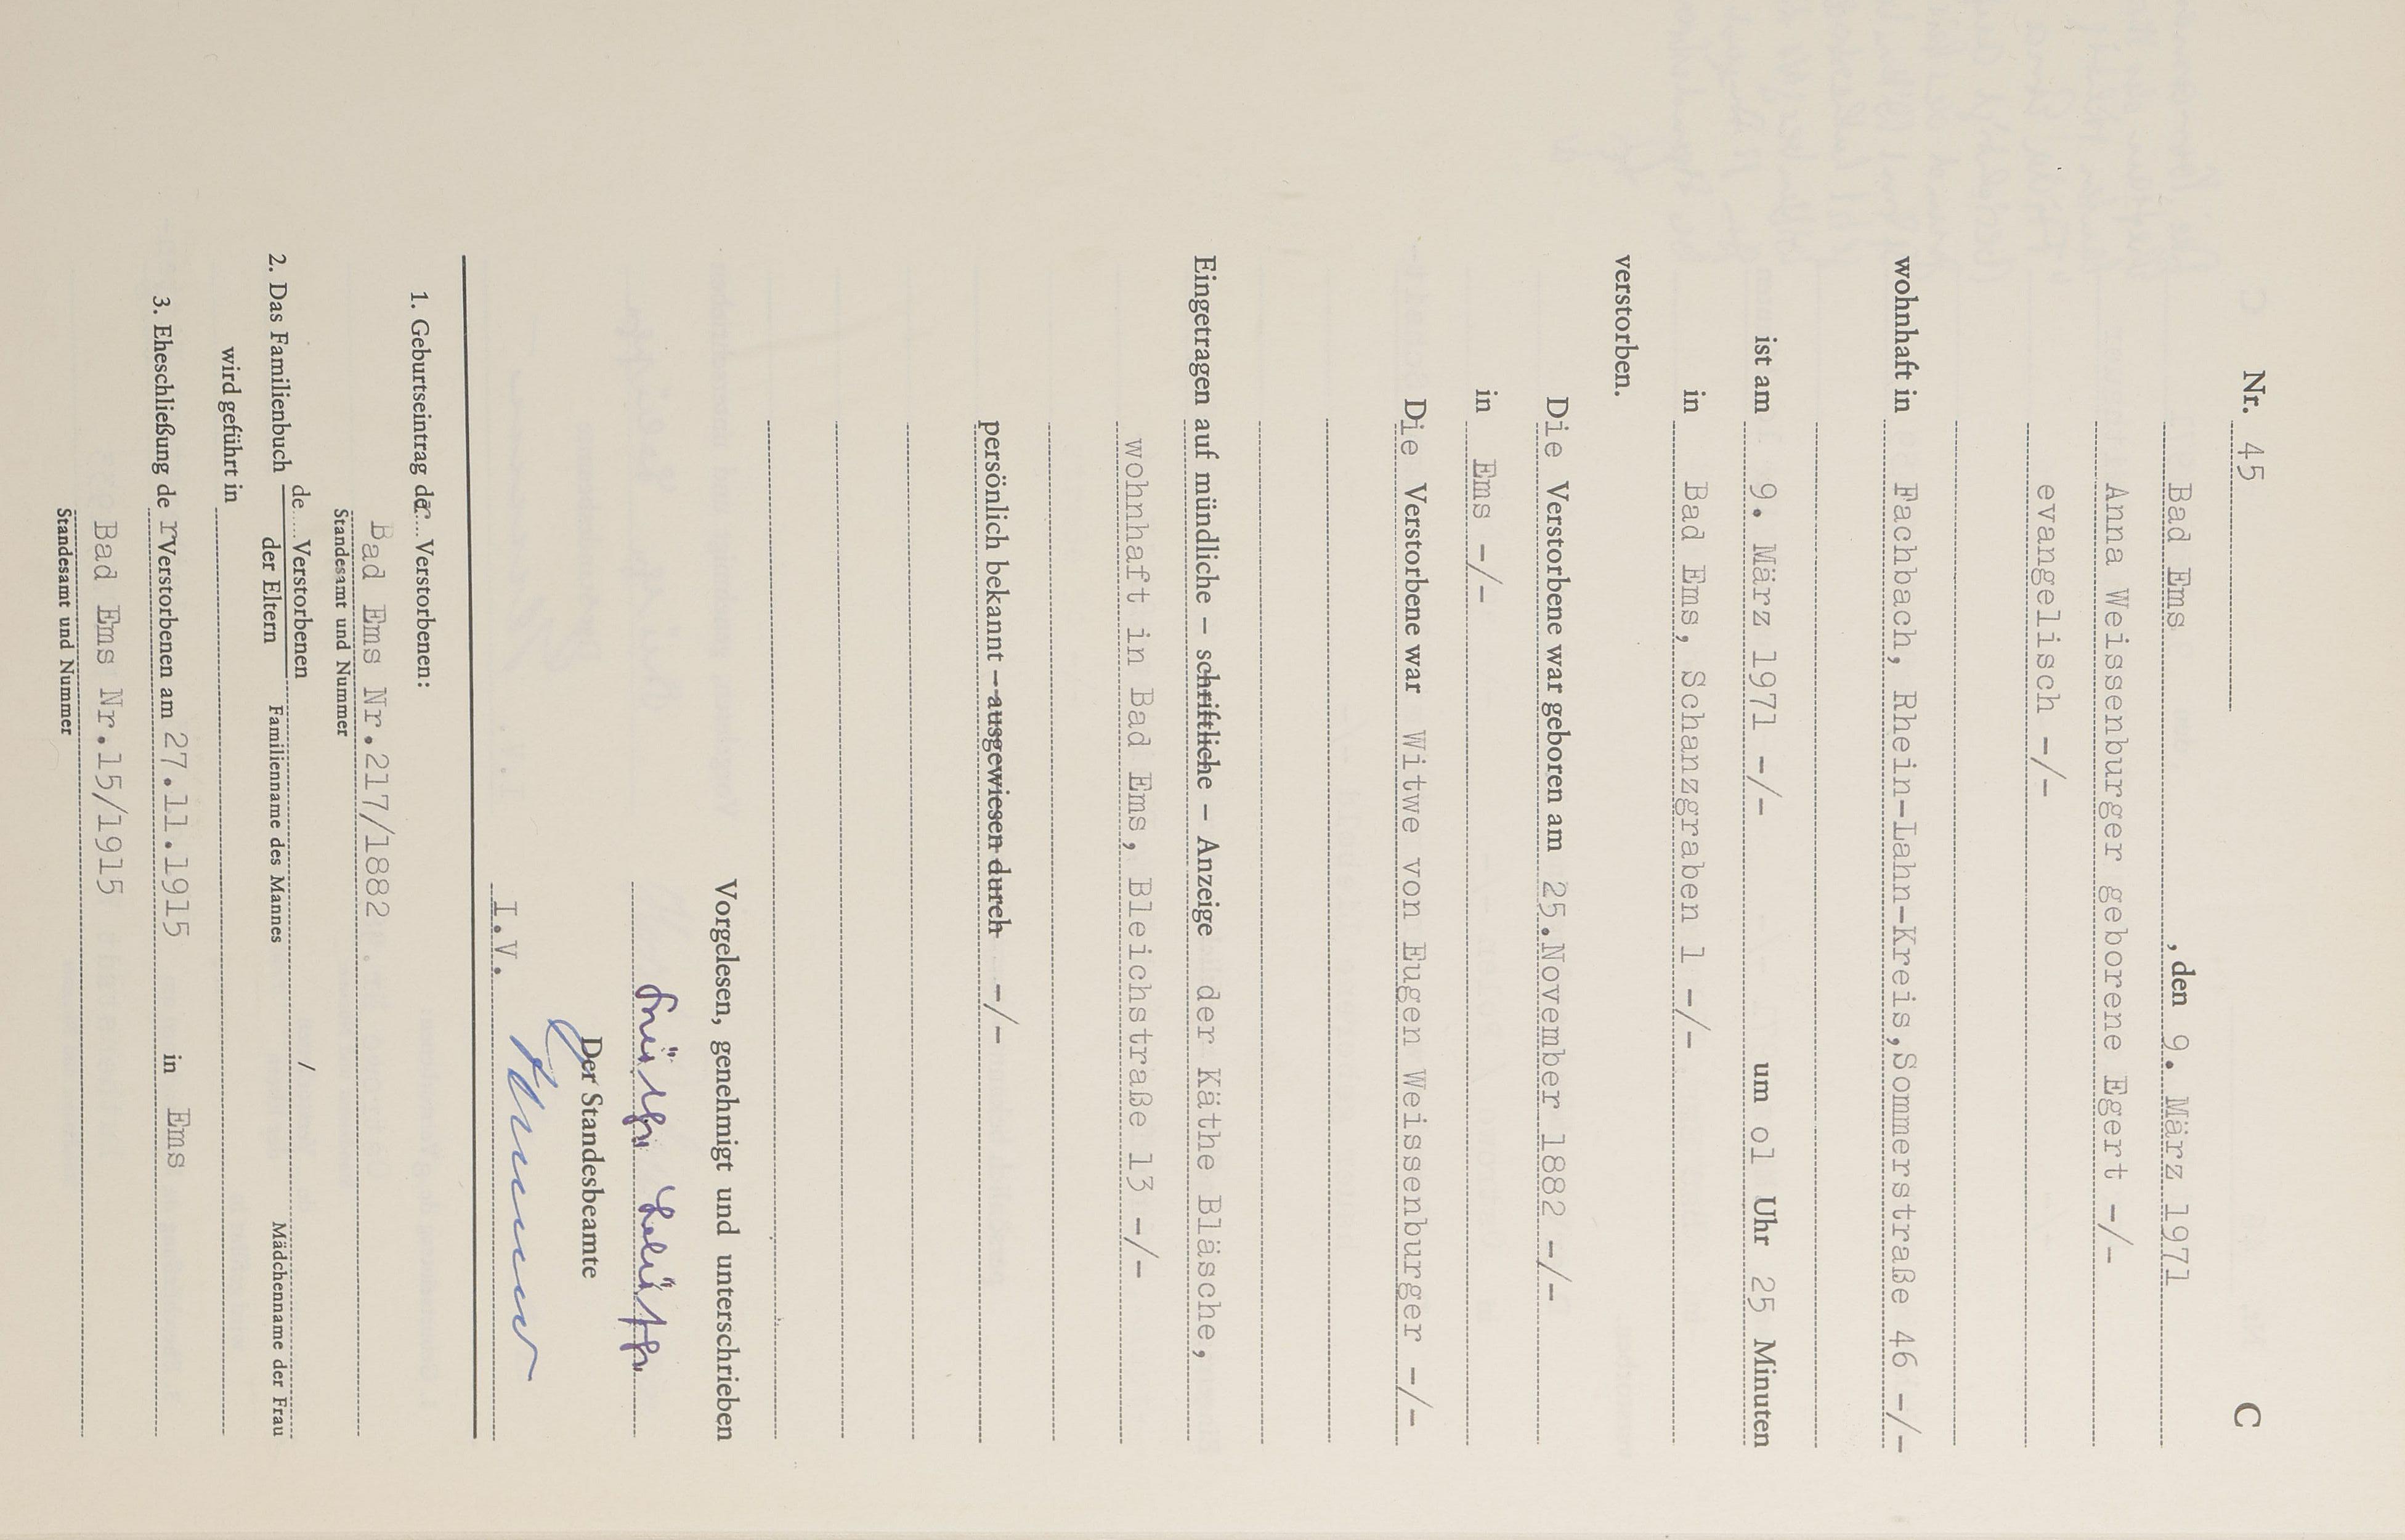 Nr. 45 C
Bad Ems, den 9. März 1971
Anna Weissenburger geborene Egert -/-
evangelisch -/-
wohnhaft in Fachbach, Rhein-Lahn-Kreis,Sommerstraße 46 -/-
ist am 9. März 1971 -/- um 01 Uhr 25 Minuten
in Bad Ems, Schanzgraben 1 -/-
verstorben.
Die Verstorbene war geboren am 25.November 1882 -/-
in Ems -/-
Die Verstorbene war Witwe von Eugen Weissenburger -/-
Eingetragen auf mündliche – schriftliche – Anzeige der Käthe Bläsche,
wohnhaft in Bad Ems, Bleichstraße 13 -/-
persönlich bekannt – ausgewiesen durch -/-
Vorgelesen, genehmigt und unterschrieben
Der Standesbeamte
I.V.
1. Geburtseintrag der Verstorbenen:
Bad Ems Nr.217/1882
Standesamt und Nummer
2. Das Familienbuch de.... Verstorbenen /
der Eltern Familienname des Mannes Mädchenname der Frau
wird geführt in
3. Eheschließung der Verstorbenen am 27.11.1915 in Ems
Bad Ems Nr.15/1915
Standesamt und Nummer